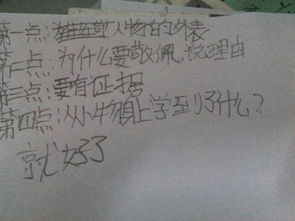 第一点：人物的外表
第二点：为什么要敬佩，说理由
第三点：要有证据
第四点：从人物身上学到了什么？
就好了